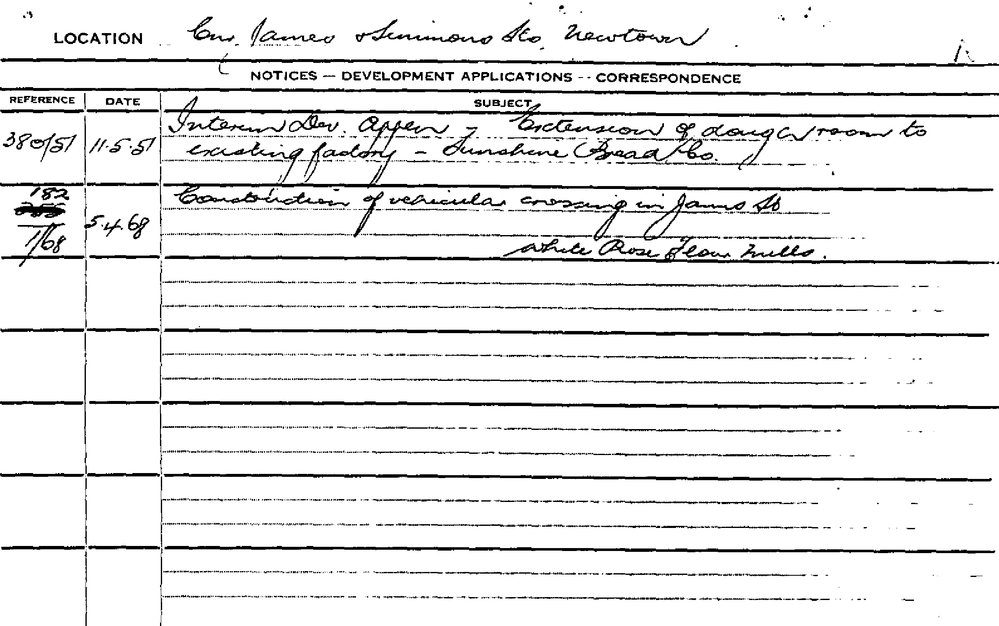 LOCATION Cnr. James & Simmons Sts, Newtown
NOTICES — DEVELOPMENT APPLICATIONS -- CORRESPONDENCE
REFERENCE DATE SUBJECT
380/51 11.5.51 Interim Dev. Appln, Extension of dough room to
existing factory - Sunshine Bread Co.
182
1/68 5.4.68 Construction of vehicular crossing in James St
White Rose Flour Mills.